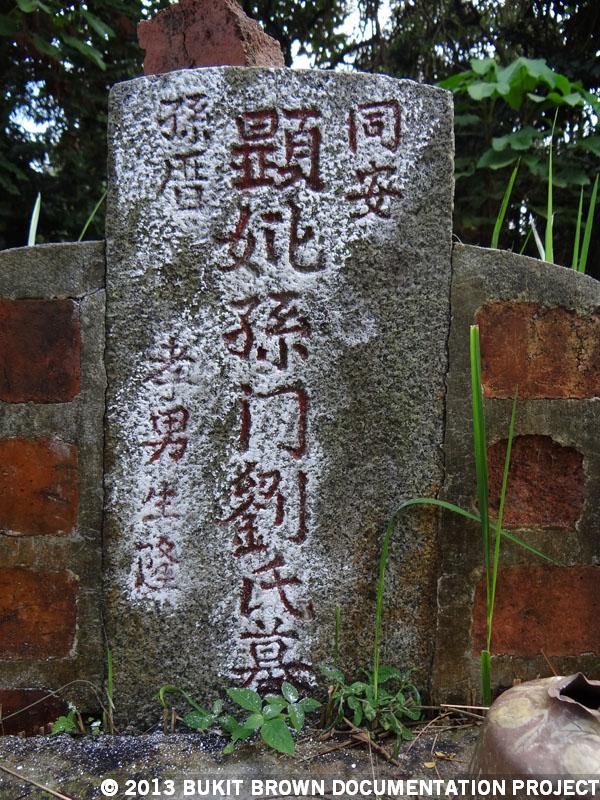 同安
顕妣孫门劉氏墓
孫厝
孝男生隆
© 2013 BUKIT BROWN DOCUMENTATION PROJECT